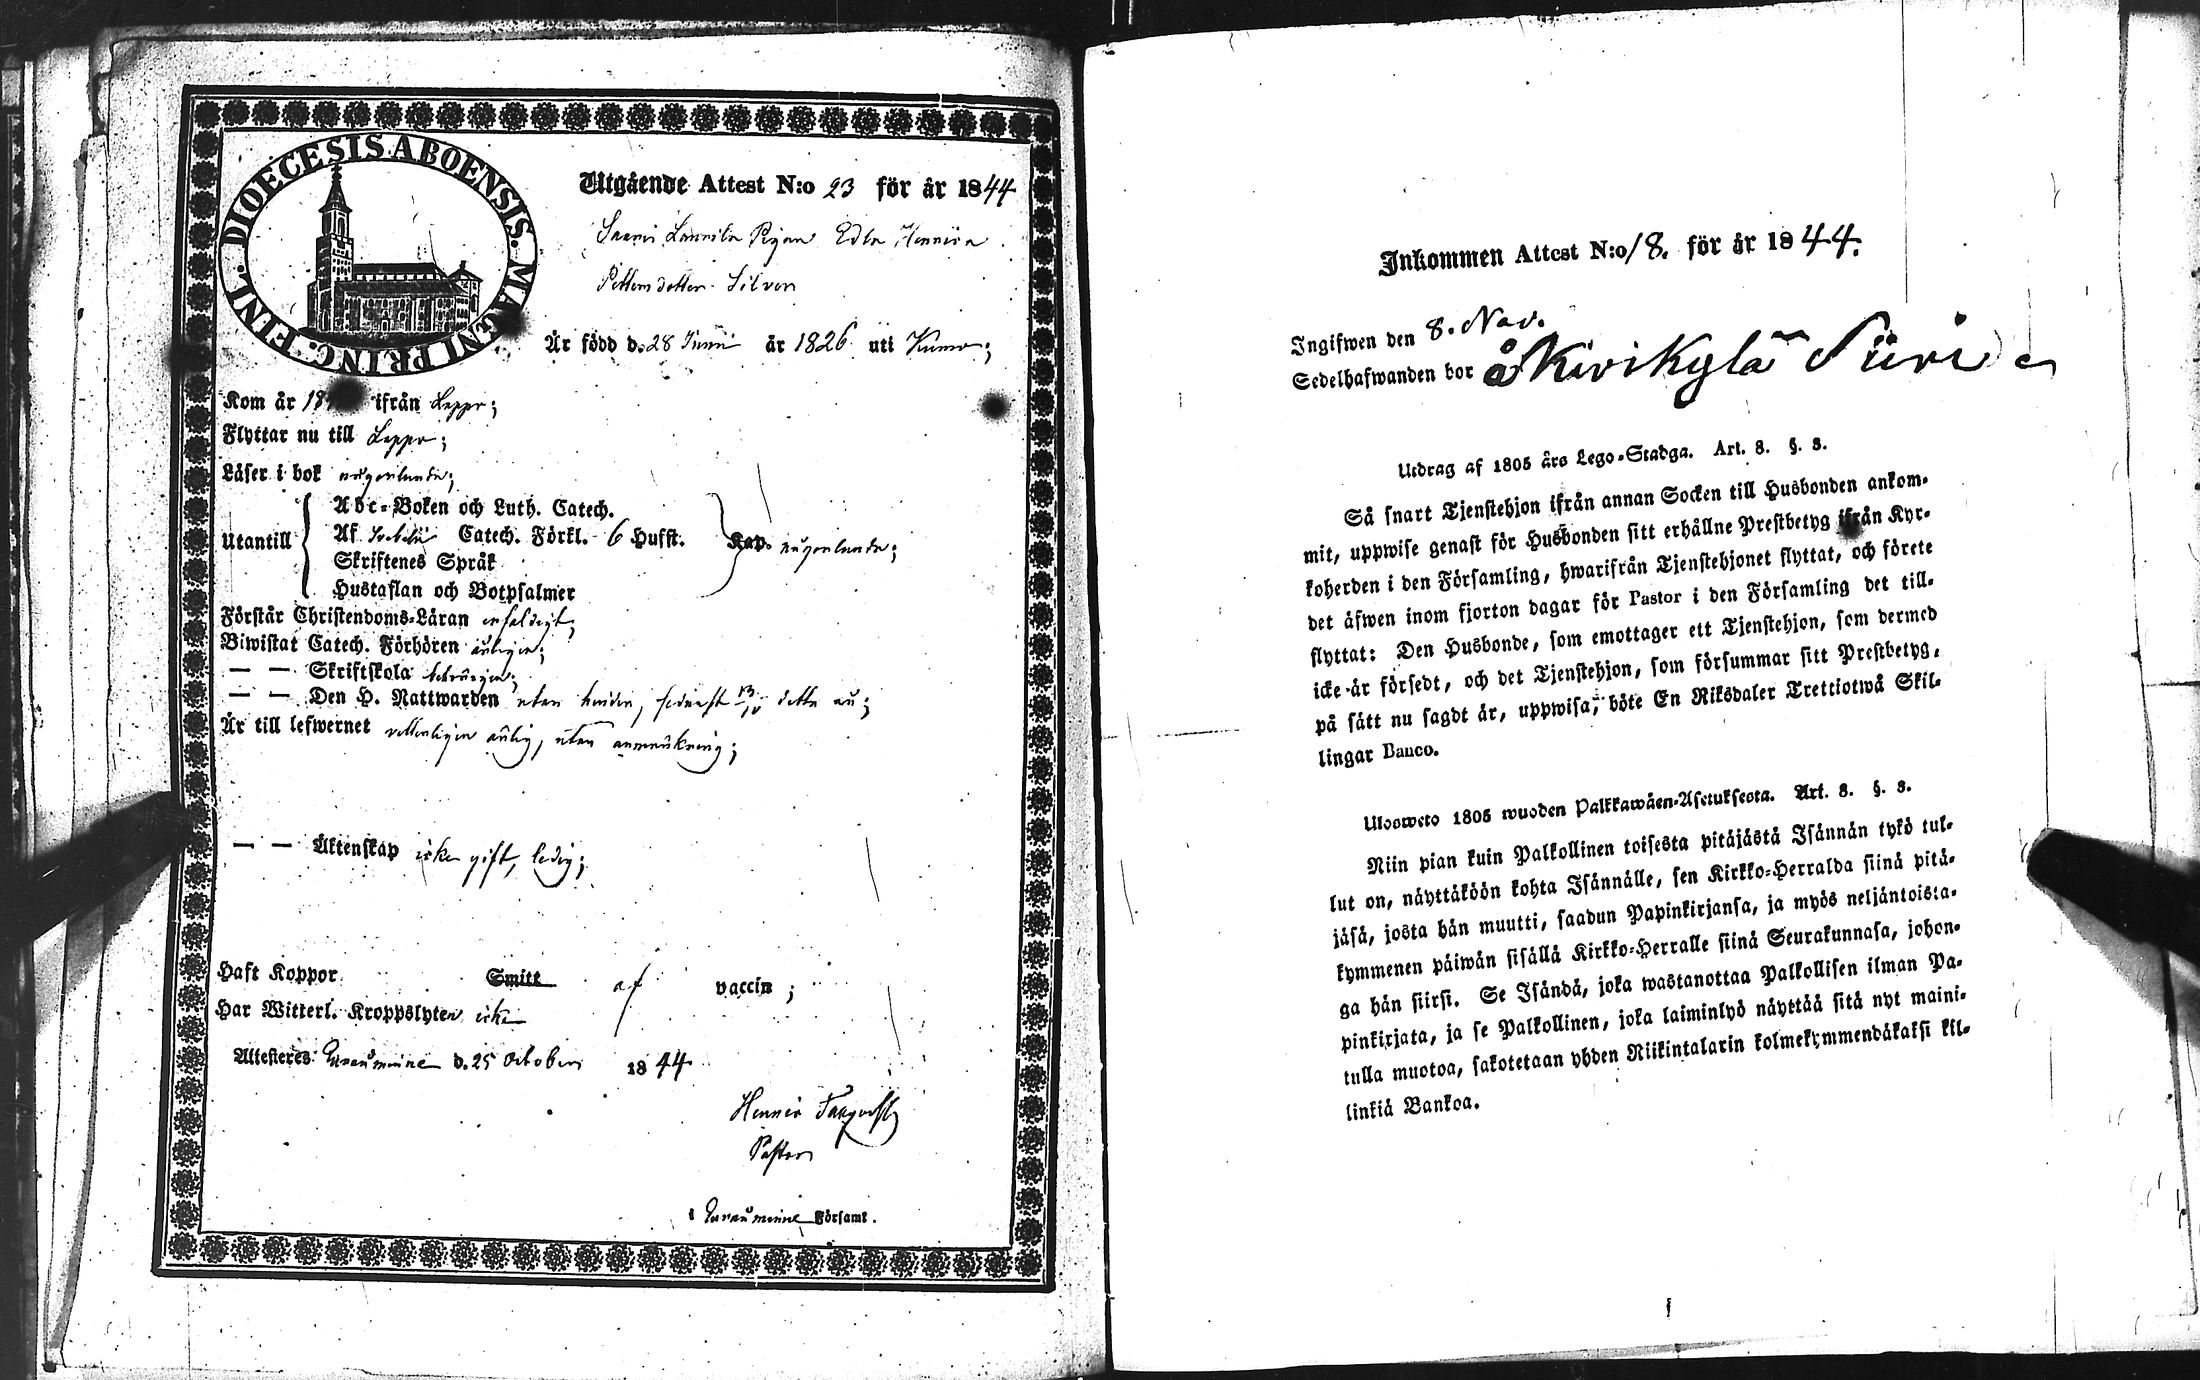 DIOECESIS ABOENSIS. MAGNI PRINC. FINL.
Utgående Attest N:o 23 för år 1844
Edla Henrica
Pettersdotter Silven
Är född d. 28 Junii år 1826 uti Kumo;
Kom år 18 ifrån Lappo;
Flyttar nu till Lappo;
Läser i bok någorlunda;
Abc-Boken och Luth. Catech.
Utantill Af Catech. Förkl. 6 Hufst. Kap. någorlunda;
Skriftenes Språk
Hustaflan och Botpsalmer
Förstår Christendoms-Läran enfaldigt;
Biwistat Catech. Förhören årligen;
— — Skriftskola
— — Den H. Nattwarden utan hinder, sednast detta år;
Är till lefwernet ärlig, utan anmärkning;
— — Äktenskap icke gift, ledig;
Haft Koppor Smitt af vaccin ;
Har Witterl. Kroppslyten icke
Attesteres Euraåminne d. 25 October 1844
Henric
Pastor
i Euraåminne Församl.
Inkommen Attest N:o 18. för år 1844.
Ingifwen den 8. Nov.
Sedelhafwanden bor å Kivikylä
Utdrag af 1805 års Lego-Stadga. Art. 8. §. 3.
Så snart Tjenstehjon ifrån annan Socken till Husbonden ankom-
mit, uppwise genast för Husbonden sitt erhållne Prestbetyg ifrån Kyr-
koherden i den Församling, hwarifrån Tjenstehjonet flyttat, och förete
det äfwen inom fjorton dagar för Pastor i den Församling det till-
flyttat: Den Husbonde, som emottager ett Tjenstehjon, som dermed
icke är försedt, och det Tjenstehjon, som försummar sitt Prestbetyg,
på sätt nu sagdt är, uppwisa, böte En Riksdaler Trettiotwå Skil-
lingar Banco.
Ulosweto 1805 wuoden Palkkawäen-Asetuksesta. Art. 8. §. 3.
Niin pian kuin Palkollinen toisesta pitäjästä Isännän tykö tul-
lut on, näyttäköön kohta Isännälle, sen Kirkko-Herralda siinä pitä-
jäsä, josta hän muutti, saadun Papinkirjansa, ja myös neljäntoista-
kymmenen päiwän sisällä Kirkko-Herralle siinä Seurakunnasa, johon-
ga hän siirsi. Se Isändä, joka wastanottaa Palkollisen ilman Pa-
pinkirjata, ja se Palkollinen, joka laiminlyö näyttää sitä nyt maini-
tulla muotoa, sakotetaan yhden Riikintalarin kolmekymmendäkaksi kil-
linkiä Bankoa.